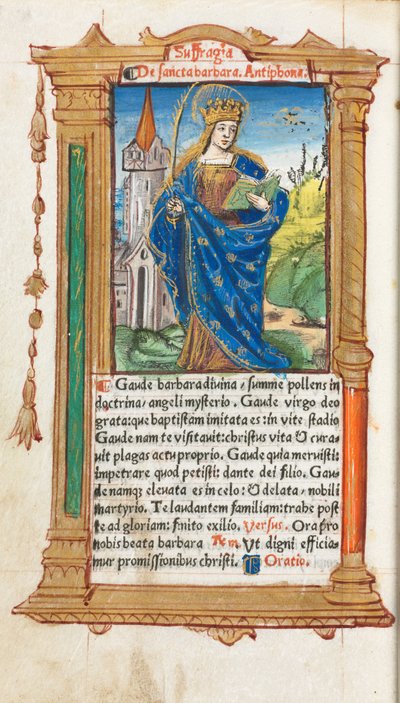 Suffragia
De sancta barbara. Antiphona.
Gaude barbara diuina / summe pollens in
doctrina / angeli mysterio. Gaude virgo deo
grata: que baptistam imitata es : in vite stadio
Gaude nam te visitauit: christus vita & cura-
uit plagas actu proprio. Gaude quia meruisti:
impetrare quod petisti: dante dei filio. Gau-
de namq; eleuata es in celo: & delata / nobili
martyrio. Te laudantem familiam: trahe post
te ad gloriam: finito exilio. Versus. Ora pro
nobis beata barbara Vt digni efficia-
mur promissionibus christi. Oratio.